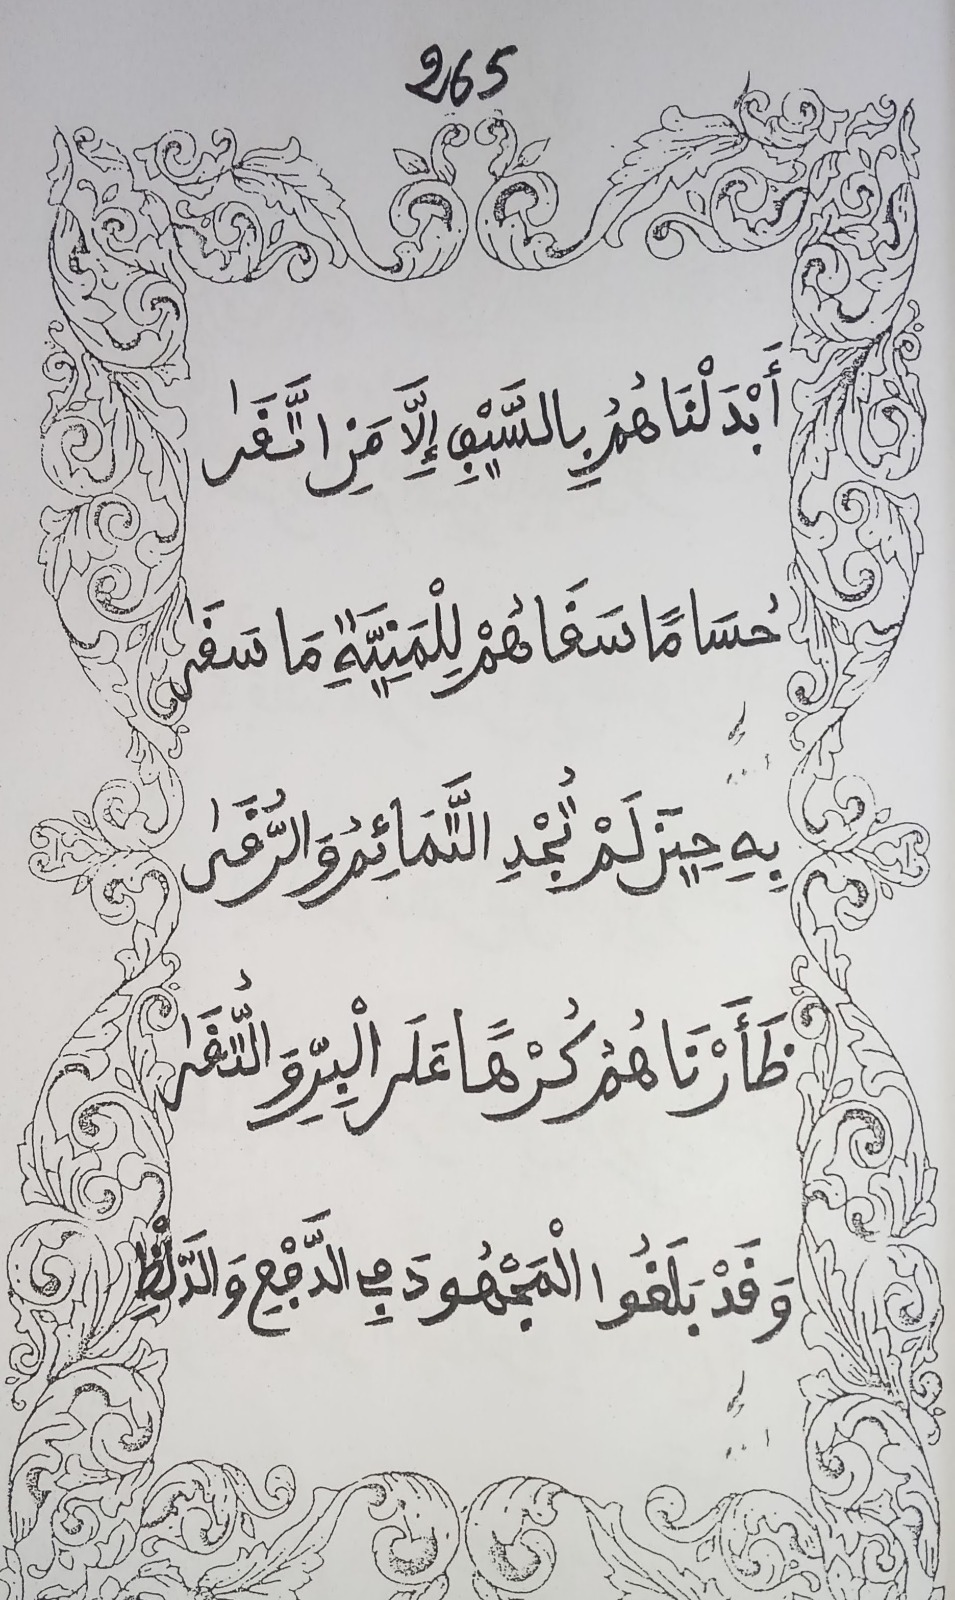 265
أَبَدْلْنَاهُمُ بِالسَّيْفِ إِلَّا مَنِ اتَّقَى
حُسَامًا سَقَاهُمْ لِلْمَنِيَّةِ مَا سَقَى
بِهِ حِينَ لَمْ تُجْدِ التَّمَائِمُ وَالرُّقَى
ظَأَرْنَاهُمُ كُرْهًا عَلَى الْبِرِّ وَالتُّقَى
وَقَدْ بَلَغُوا الْمَجْهُودَ فِي الدَّفْعِ وَالدَّلْظِ